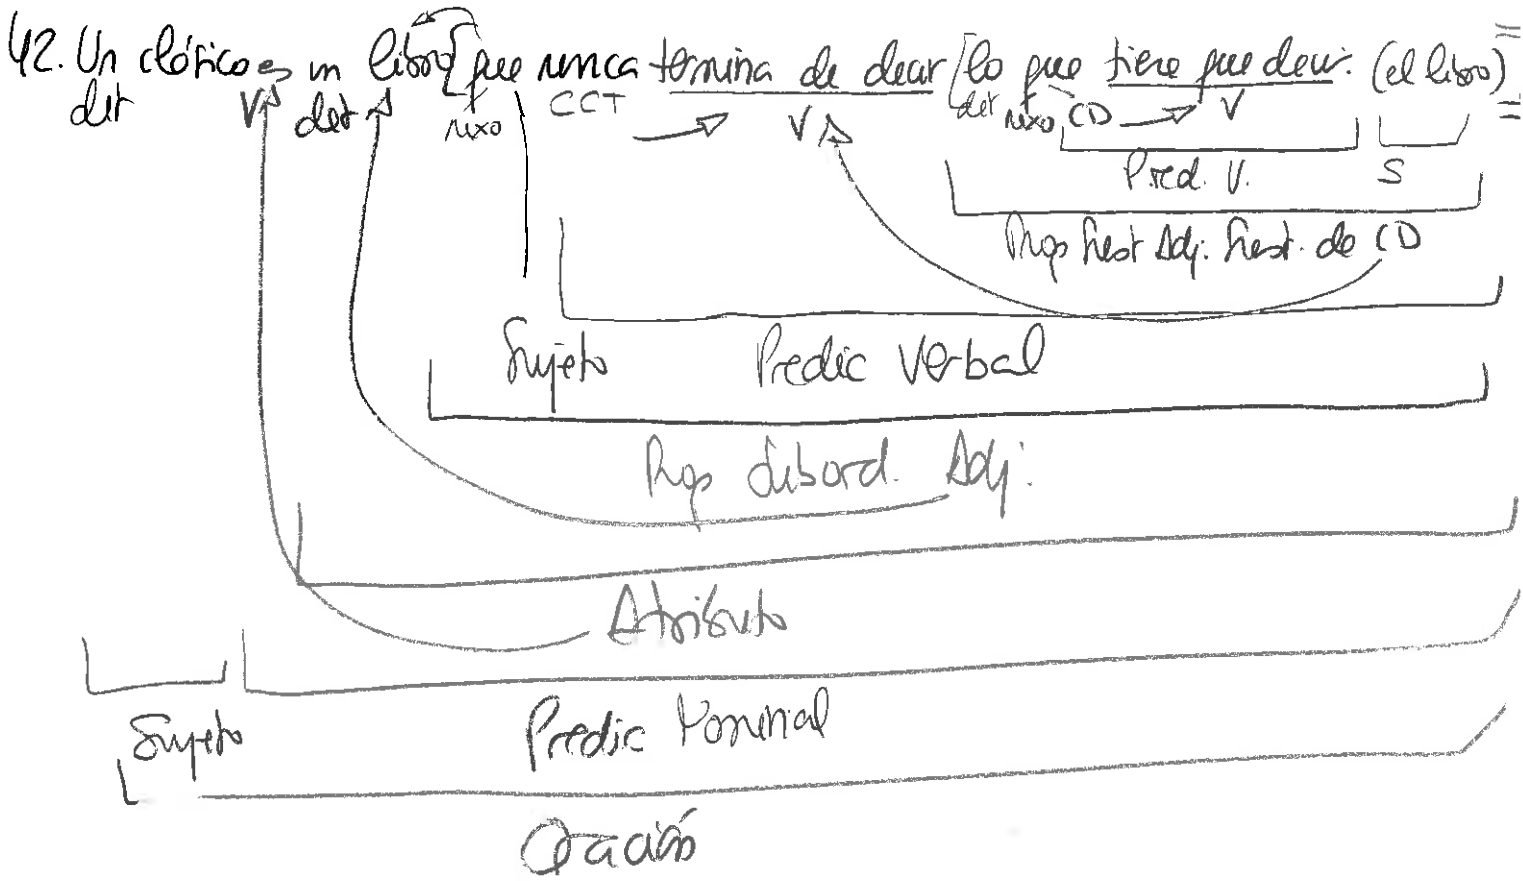 42. Un clásico es un libro [que nunca termina de decir [lo que tiene que decir. (el libro)
det V det nexo CCT V det nexo CD V
Pred. V. S
Prop Sust Adj. Sust. de CD
Sujeto Predic Verbal
Prop Subord. Adj.
Atributo
Sujeto Predic Nominal
Oración